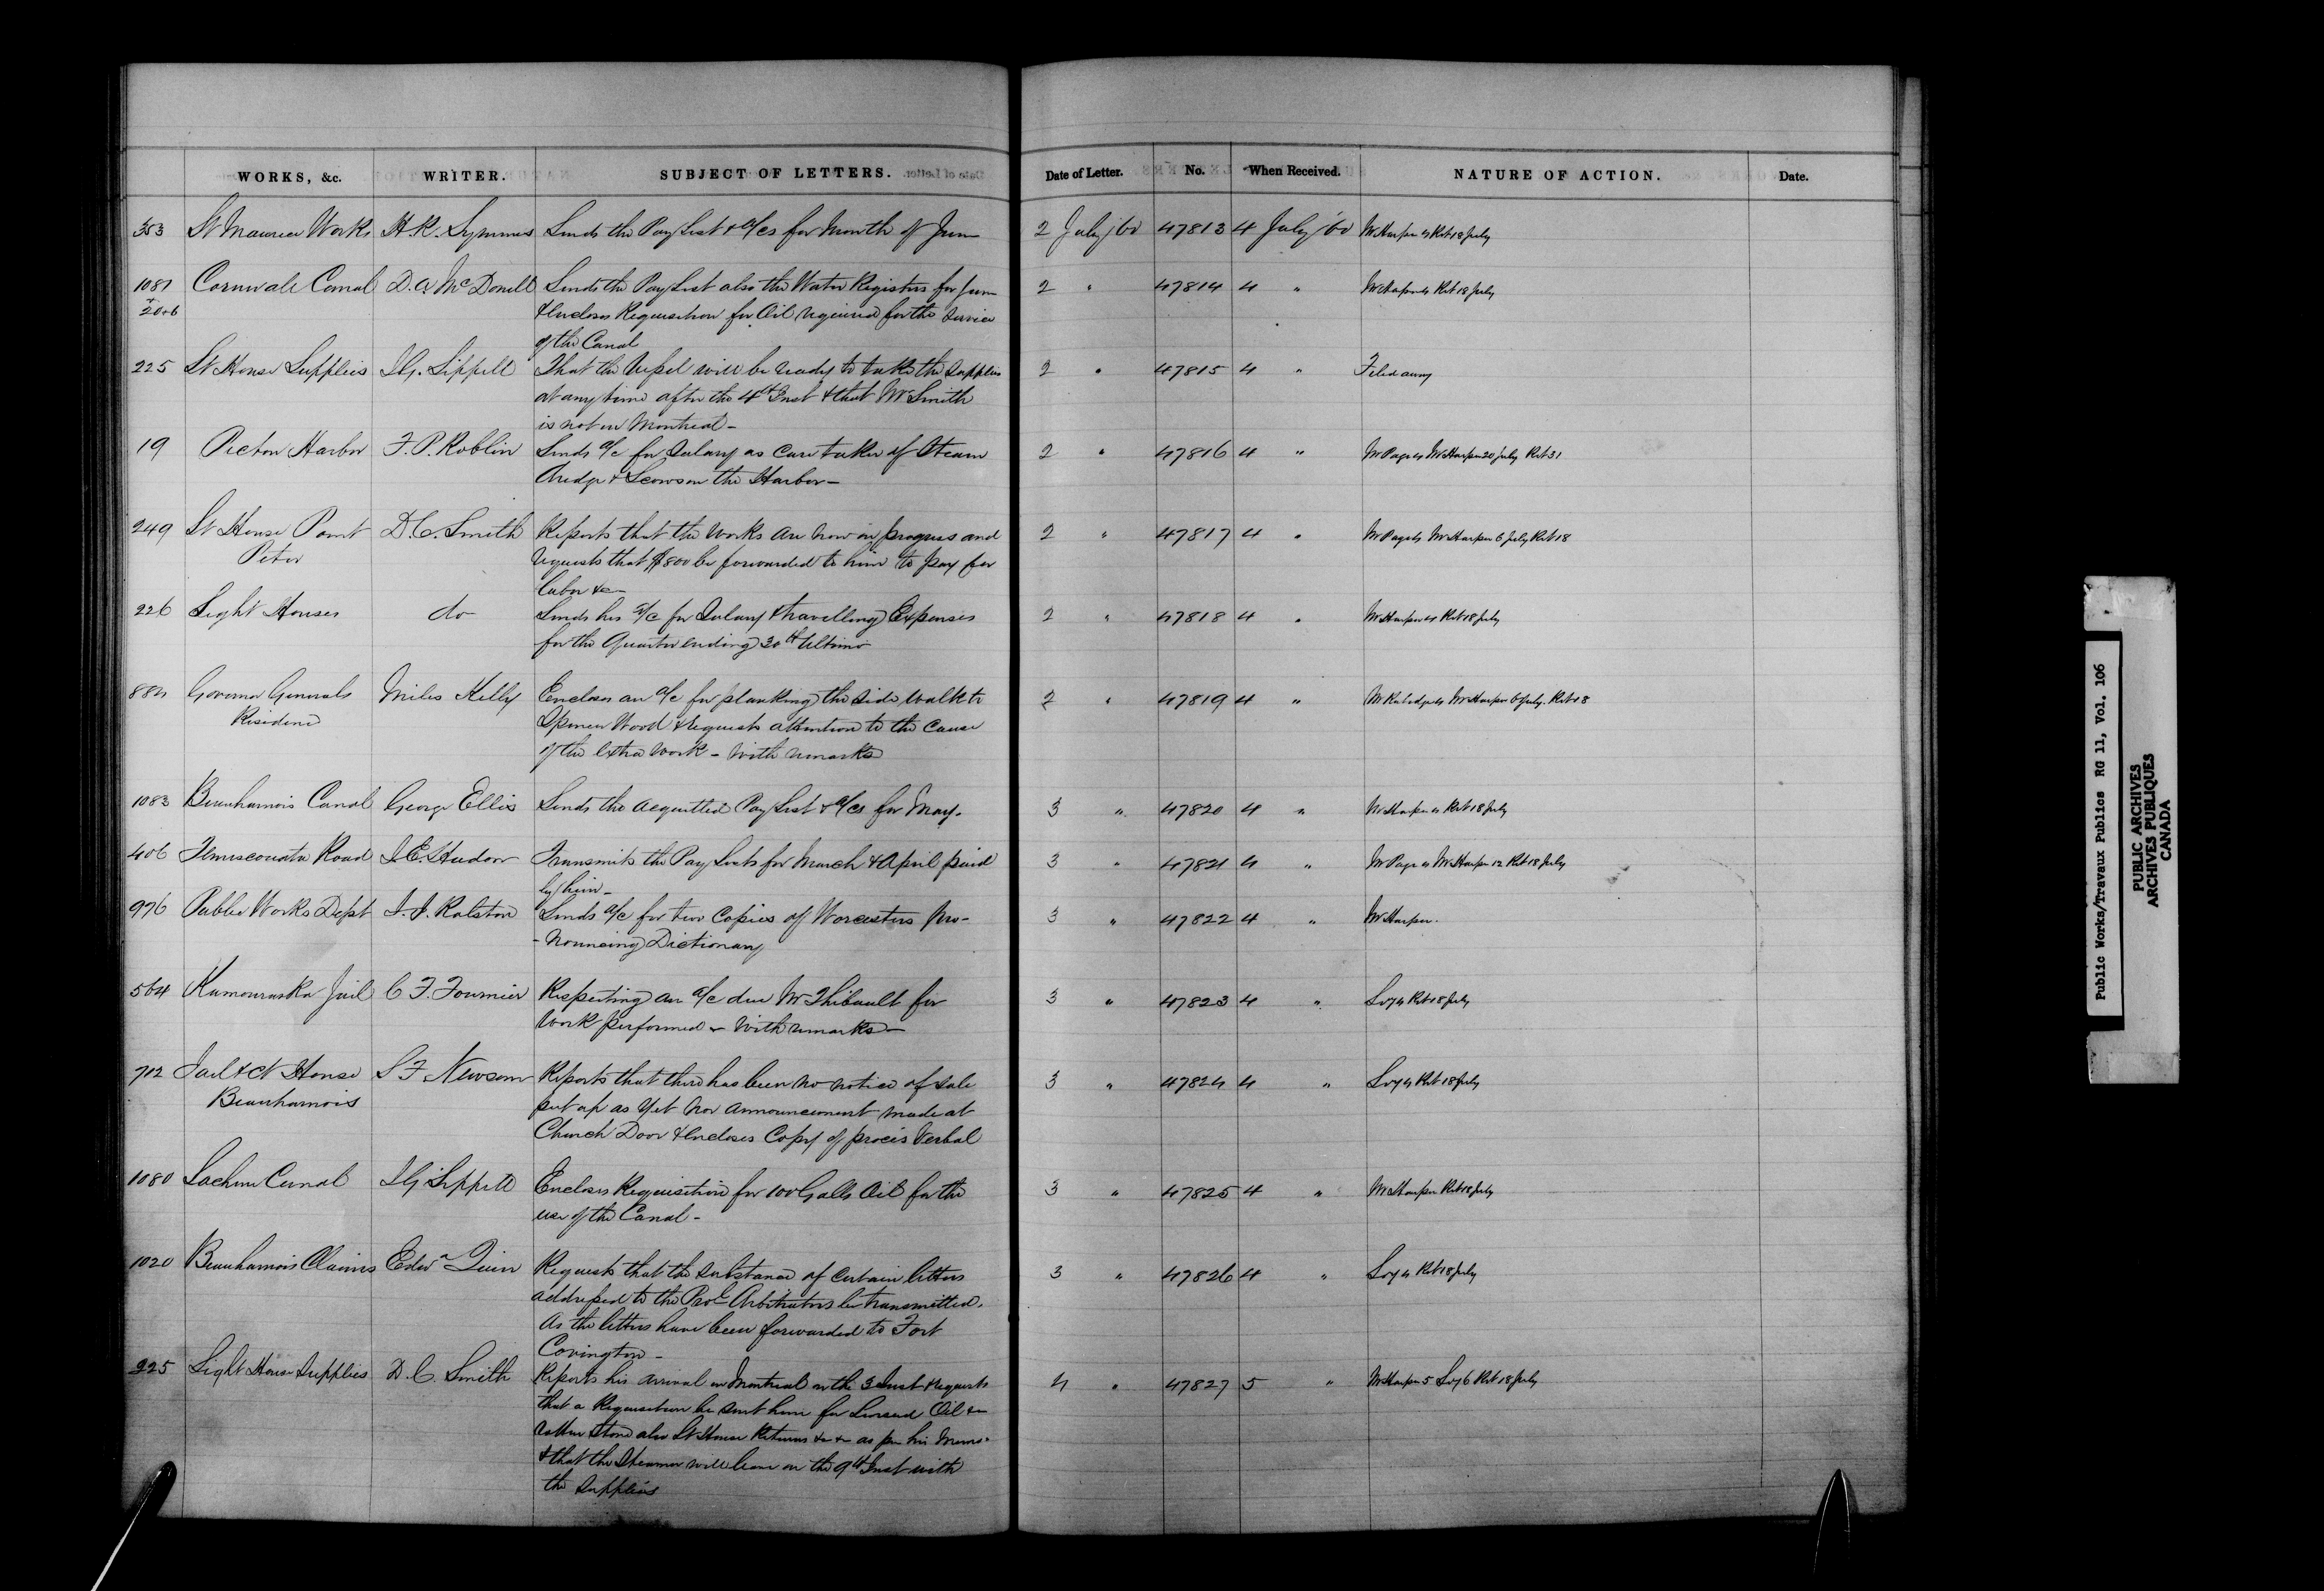 WORKS, &c. WRITER. SUBJECT OF LETTERS. Date of Letter. No. When Received. NATURE OF ACTION. Date.
353 St Maurice Works H.R. Symmes Sends the Pay List & a/cs for Month of June 2 July /60 47813 4 July '60 Mr Harper Ret 18 July
1081 Cornwall Canal D.A. McDonell Sends the Pay List also the Water Registers for June 2 " 47814 4 " Mr Harper Ret 18 July
& Encloses Requisition for Oil required for the service
of the Canal
225 Lt House Supplies J.G. Sippell That the Vessel will be ready to take the supplies 2 " 47815 4 " Filed away
at any time after the 4th Inst & that Mr Smith
is not in Montreal -
19 Picton Harbor F.P. Roblin Sends a/c for Salary as care taker of Steam 2 " 47816 4 " Mr Page Mr Harper 20 July Ret 31
Dredge & Scows in the Harbor -
249 Lt House Point D.C. Smith Reports that the works are now in progress and 2 " 47817 4 " Mr Page Mr Harper 6 July Ret 18
Peter requests that $800 be forwarded to him to pay for
labor &c
226 Light Houses do Sends his a/c for Salary & travelling Expenses 2 " 47818 4 " Mr Harper Ret 18 July
for the Quarter ending 30th Ultimo
884 Governor Generals Miles Kelly Encloses an a/c for planking the side walk to 2 " 47819 4 " Mr Rubidge Mr Harper 6 July Ret 18
Residence Spencer Wood & requests attention to the cause
of the extra work - with remarks
1083 Beauharnois Canal George Ellis Sends the acquitted Pay List & a/cs for May. 3 " 47820 4 " Mr Harper Ret 18 July
406 Temiscouata Road J.E. Hudon Transmits the Pay Lists for March & April paid 3 " 47821 4 " Mr Page Mr Harper 12 Ret 18 July
by him -
976 Public Works Dept Ralston Sends a/c for two Copies of Worcesters Pro- 3 " 47822 4 " Mr Harper.
- nouncing Dictionary
564 Kamouraska Jail C.F. Fournier Respecting an a/c due Mr Thibault for 3 " 47823 4 " Ret 18 July
Work performed - with remarks -
712 Jail & Ct House S F Newsom Reports that there has been no notice of sale 3 " 47824 4 " Ret 18 July
Beauharnois put up as yet nor announcement made at
Church Door & encloses Copy of procès Verbal
1080 Lachine Canal J G Sippell Encloses Requisition for 100 Galls Oil for the 3 " 47825 4 " Mr Harper Ret 18 July
use of the Canal -
1020 Beauharnois Claims Edwd Quin Requests that the substance of certain letters 3 " 47826 4 " Ret 18 July
addressed to the Provl Arbitrators be transmitted.
As the letters have been forwarded to Fort
Covington -
225 Light House Supplies D.C. Smith Reports his arrival in Montreal on the 3 Inst & requests 4 " 47827 5 " Mr Harper 5 6 Ret 18 July
that a Requisition be sent him for Linseed Oil &c
Rotten Stone also Lt House Returns &c &c as per his Memo.
& that the Steamer will leave on the 9th Inst with
the supplies
Public Works/Travaux Publics RG 11, Vol. 106
PUBLIC ARCHIVES
ARCHIVES PUBLIQUES
CANADA